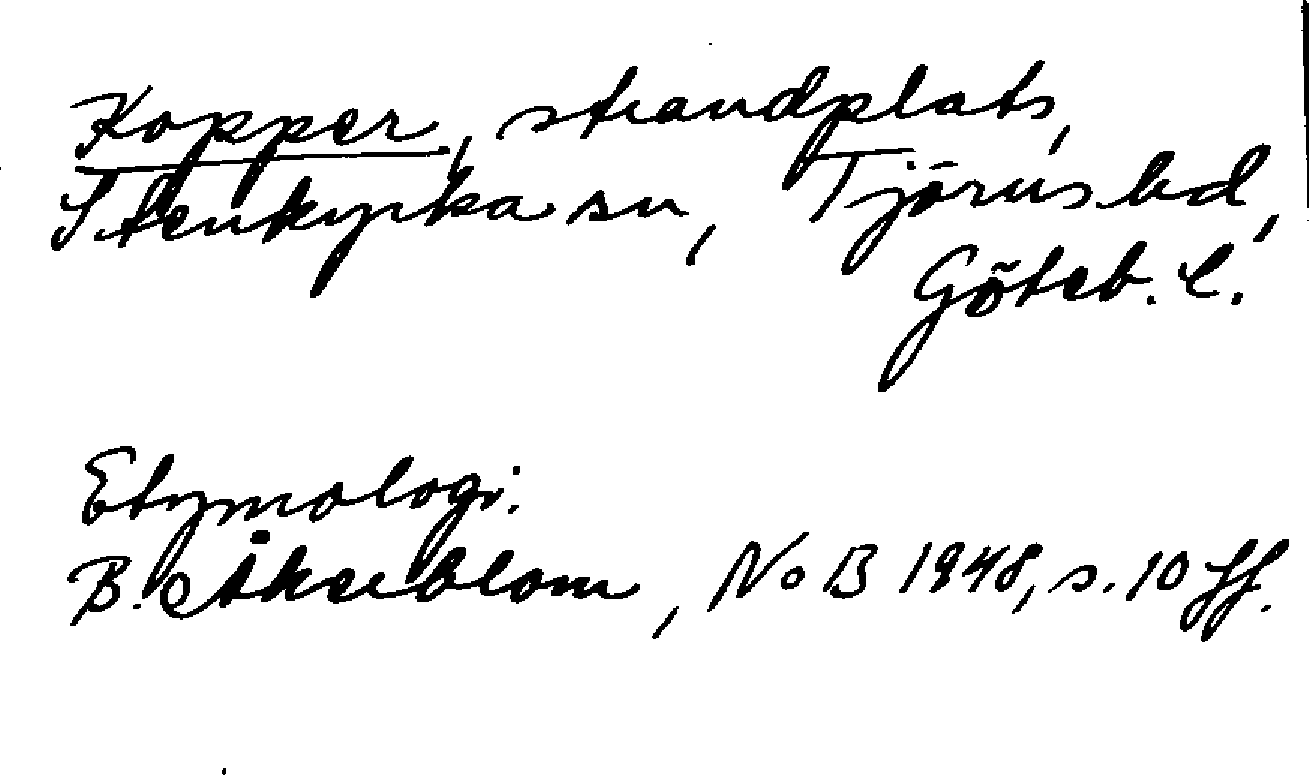 Kopper, strandplats,
Stenkyrka sn, Tjörns hd,
Göteb. l.
Etymologi.
B. Åkerblom, NoB 1948, s. 10 ff.